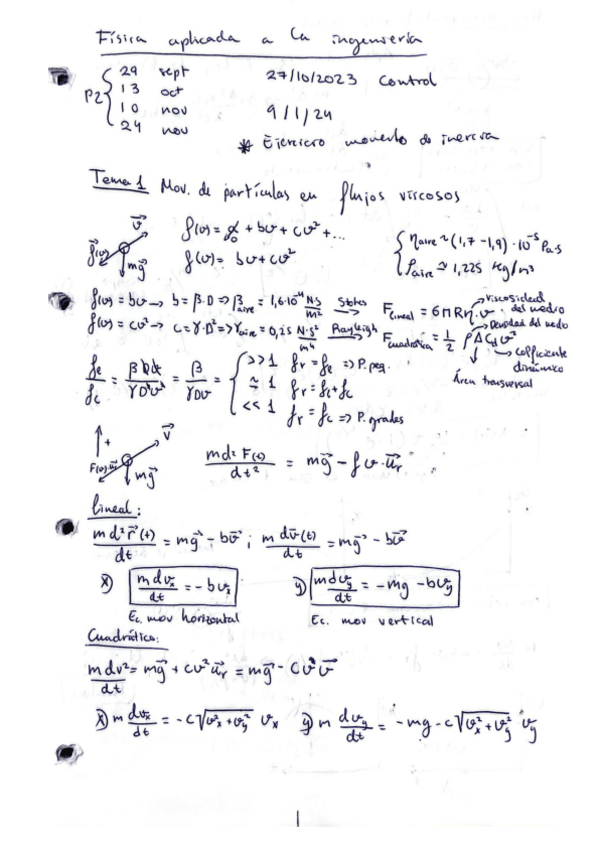 Física aplicada a la ingeniería
P2 { 29 sept
13 oct
10 nov
24 nov
27/10/2023 Control
9/1/24
* Ejercicio momento de inercia
Tema 1 Mov. de partículas en flujos viscosos
f(v) = f₀ + bv + cv² + ...
f(v) = bv + cv²
{ ηaire ≈ (1,7 - 1,9) · 10⁻⁵ Pa·s
ρaire ≈ 1,225 kg/m³
f(v) = bv → b = β·D ⇒ βaire = 1,6·10⁻⁴ N·s/m² Stokes
f(v) = cv² → c = γ·D² ⇒ γaire = 0,25 N·s²/m⁴ Rayleigh
Flineal = 6πRη·v
Viscosidad del medio
Fcuadrática = 1/2 ρACdv²
Densidad del medio
Coefficiente dinámico
Área transversal
fℓ/fc = βDv/γD²v² = β/γDv = { >> 1 fr = fℓ ⇒ P. peq.
≈ 1 fr = fℓ + fc
<< 1 fr = fc ⇒ P. grades
md²F(t)/dt² = mg⃗ - fv·u⃗r
lineal:
md²r⃗(t)/dt = mg⃗ - bv⃗ ; m dv⃗(t)/dt = mg⃗ - bv⃗
x) m dvx/dt = -bvx
y) m dvy/dt = -mg - bvy
Ec. mov horizontal
Ec. mov vertical
Cuadrática:
m dv²/dt = mg⃗ + cv²u⃗r = mg⃗ - cv²v⃗
x) m dvx/dt = -c√(vx² + vy²) vx
y) m dvy/dt = -mg - c√(vx² + vy²) vy
1